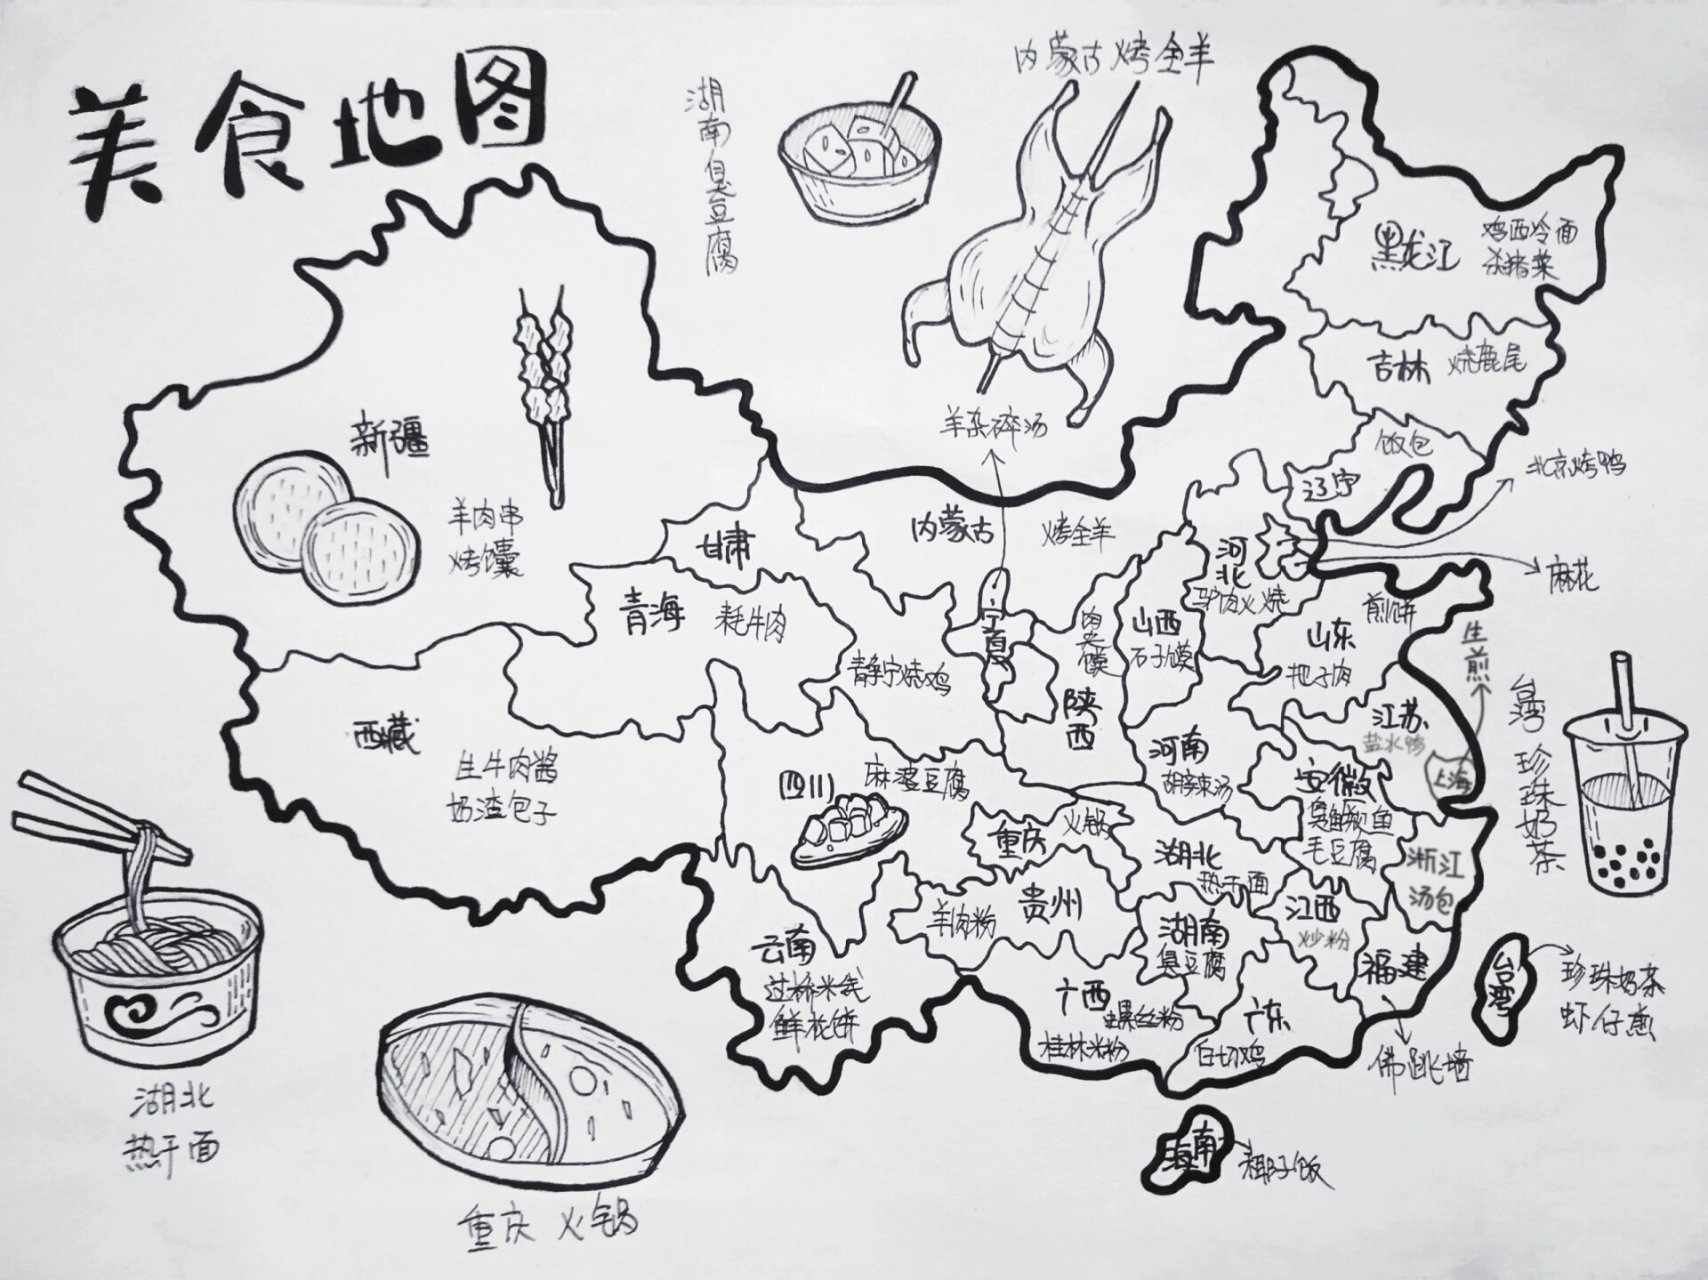 美食地图
湖南臭豆腐
内蒙古烤全羊
黑龙江
鸡西冷面
杀猪菜
吉林
烧鹿尾
饭包
辽宁
北京烤鸭
麻花
羊杂碎汤
新疆
羊肉串
烤馕
甘肃
内蒙古
烤全羊
河北
驴肉火烧
青海
耗牛肉
静宁烧鸡
宁夏
肉夹馍
陕西
山西
石子馍
山东
煎饼
把子肉
生煎
台湾珍珠奶茶
西藏
生牛肉酱
奶渣包子
四川
麻婆豆腐
河南
胡辣汤
江苏
盐水鸭
上海
安徽
臭鳜鱼
毛豆腐
重庆
火锅
湖北
热干面
浙江
汤包
贵州
羊肉粉
湖南
臭豆腐
江西
炒粉
福建
佛跳墙
云南
过桥米线
鲜花饼
广西
螺丝粉
桂林米粉
广东
白切鸡
台湾
珍珠奶茶
虾仔煎
海南
椰子饭
湖北
热干面
重庆火锅